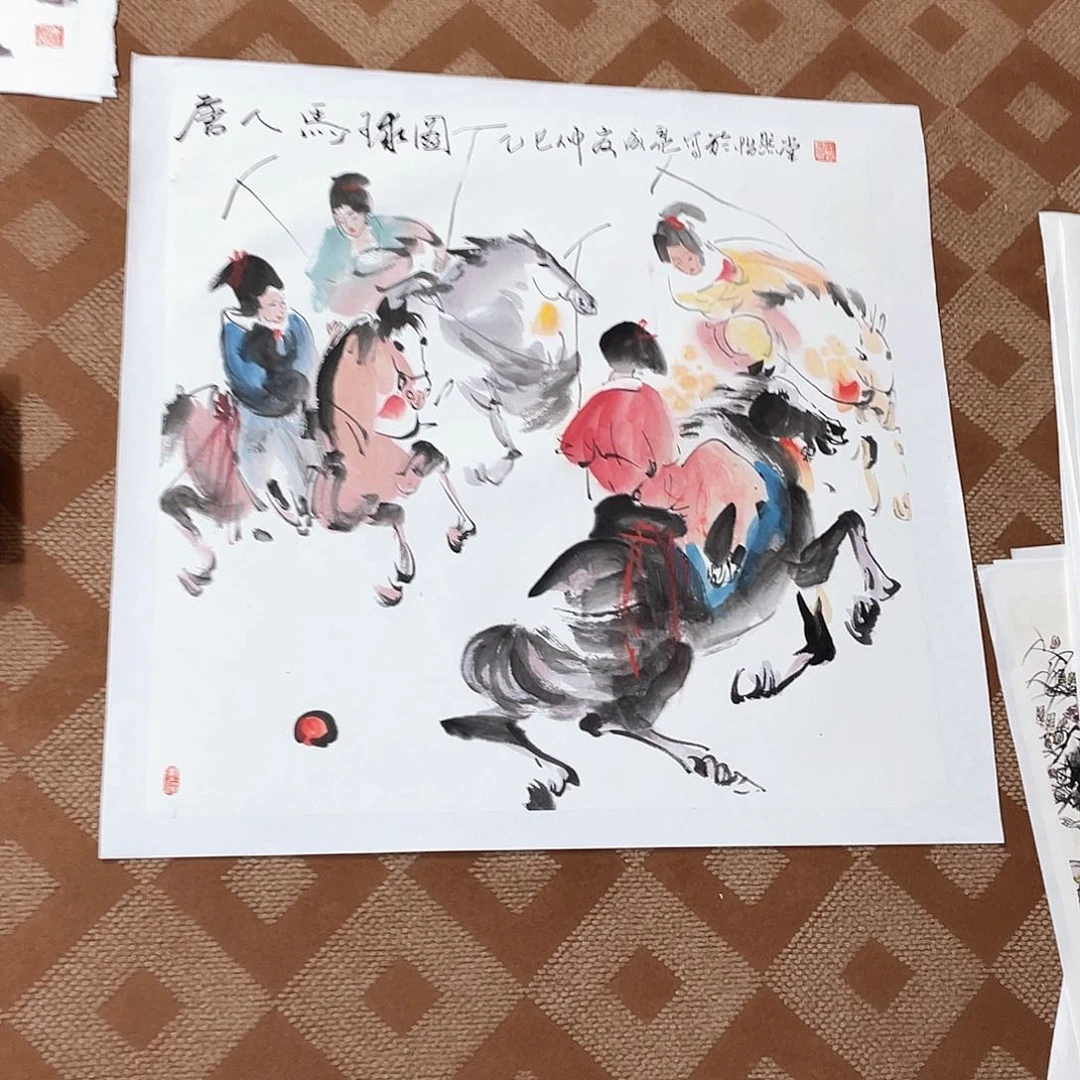 唐人馬球圖 乙巳仲夏成亮写於怡然堂